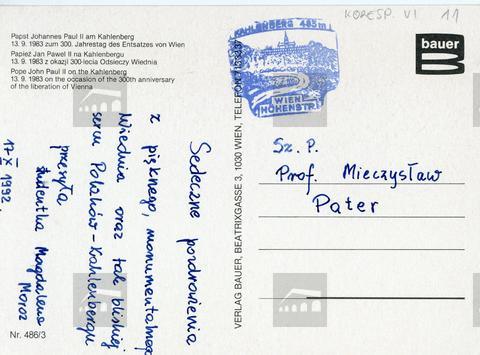 KORESP. VI 11
Papst Johannes Paul II am Kahlenberg
13. 9. 1983 zum 300. Jahrestag des Entsatzes von Wien
Papież Jan Paweł II na Kahlenbergu
13. 9. 1983 z okazji 300-lecia Odsieczy Wiednia
Pope John Paul II on the Kahlenberg
13. 9. 1983 on the occasion of the 300th anniversary
of the liberation of Vienna
KAHLENBERG 483 m
WIEN
HÖHENSTR.
bauer
Sedeczne pozdrowienia
z pięknego, monumentalnego
Wiednia oraz tak bliskiej
sercu Polaków - Kahlenbergu
przesyła
studentka Magdalena
Moroz
17-X 1992.
VERLAG BAUER, BEATRIXGASSE 3, 1030 WIEN, TELEFON
Sz. P.
Prof. Mieczysław
Pater
Nr. 486/3